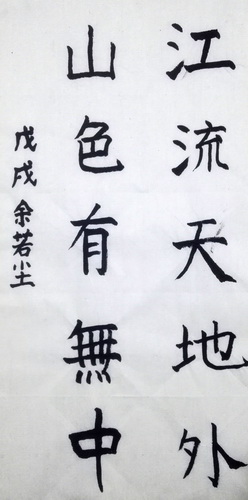 江流天地外
山色有無中
戊戌余若尘